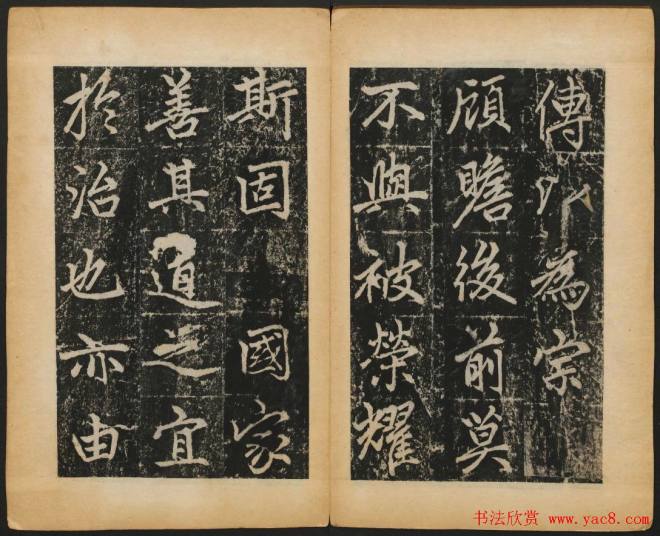 傳以為宗
顧瞻後前莫
不與被榮耀
斯固 國家
善其道之宜
於治也亦由
书法欣赏 www.yac8.com